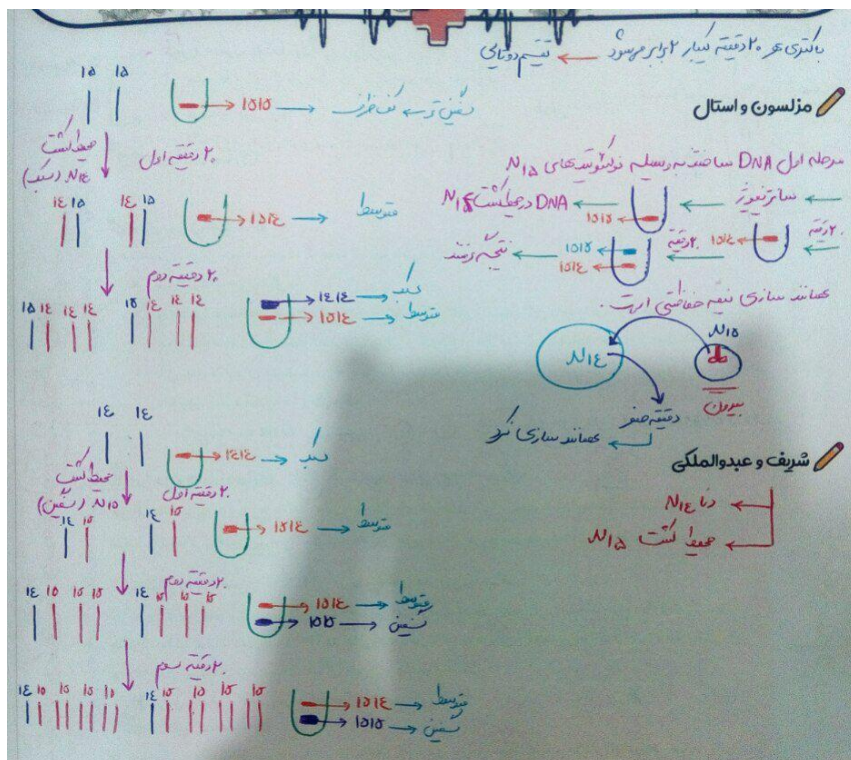 باکتری هر ۲۰ دقیقه یکبار ۲ برابر می‌شود ← تقسیم دوتایی
مزلسون و استال
مرحله اول DNA ساختند به وسیله نوکلئوتیدهای N۱۵
← سانتریفیوژ ← ۱۵۱۵ ← DNA در محیط کشت N۱۴
۲۰ دقیقه ← ۱۵۱۴ ← ۲۰ دقیقه ← ۱۵۱۵ ۱۵۱۴ ← نتیجه گرفتند
همانند سازی نیمه حفاظتی است.
N۱۵
N۱۴
بیرون
دقیقه صفر
همانند سازی نکرد
شریف و عبدوالملکی
دنا N۱۴
محیط کشت N۱۵
۱۵ ۱۵
۱۵۱۵ → سنگین ته کف ظرف
محیط کشت
N۱۴ (سبک)
۲۰ دقیقه اول
۱۴ ۱۵ ۱۴ ۱۵
۱۵۱۴ → متوسط
۲۰ دقیقه دوم
۱۵ ۱۴ ۱۴ ۱۴ ۱۵ ۱۴ ۱۴ ۱۴
۱۴۱۴ → سبک
۱۵۱۴ → متوسط
۱۴ ۱۴
۱۴۱۴ → سبک
محیط کشت
N۱۵ (سنگین)
۲۰ دقیقه اول
۱۴ ۱۵ ۱۴ ۱۵
۱۵۱۴ → متوسط
۲۰ دقیقه دوم
۱۴ ۱۵ ۱۵ ۱۵ ۱۴ ۱۵ ۱۵ ۱۵
۱۵۱۴ → متوسط
۱۵۱۵ → سنگین
۲۰ دقیقه سوم
۱۴ ۱۵ ۱۵ ۱۵ ۱۵ ۱۴ ۱۵ ۱۵ ۱۵ ۱۵
۱۵۱۴ → متوسط
۱۵۱۵ → سنگین